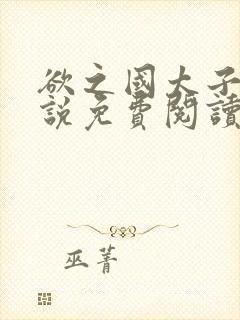 欲之國大子
說免費閱讀
巫菁